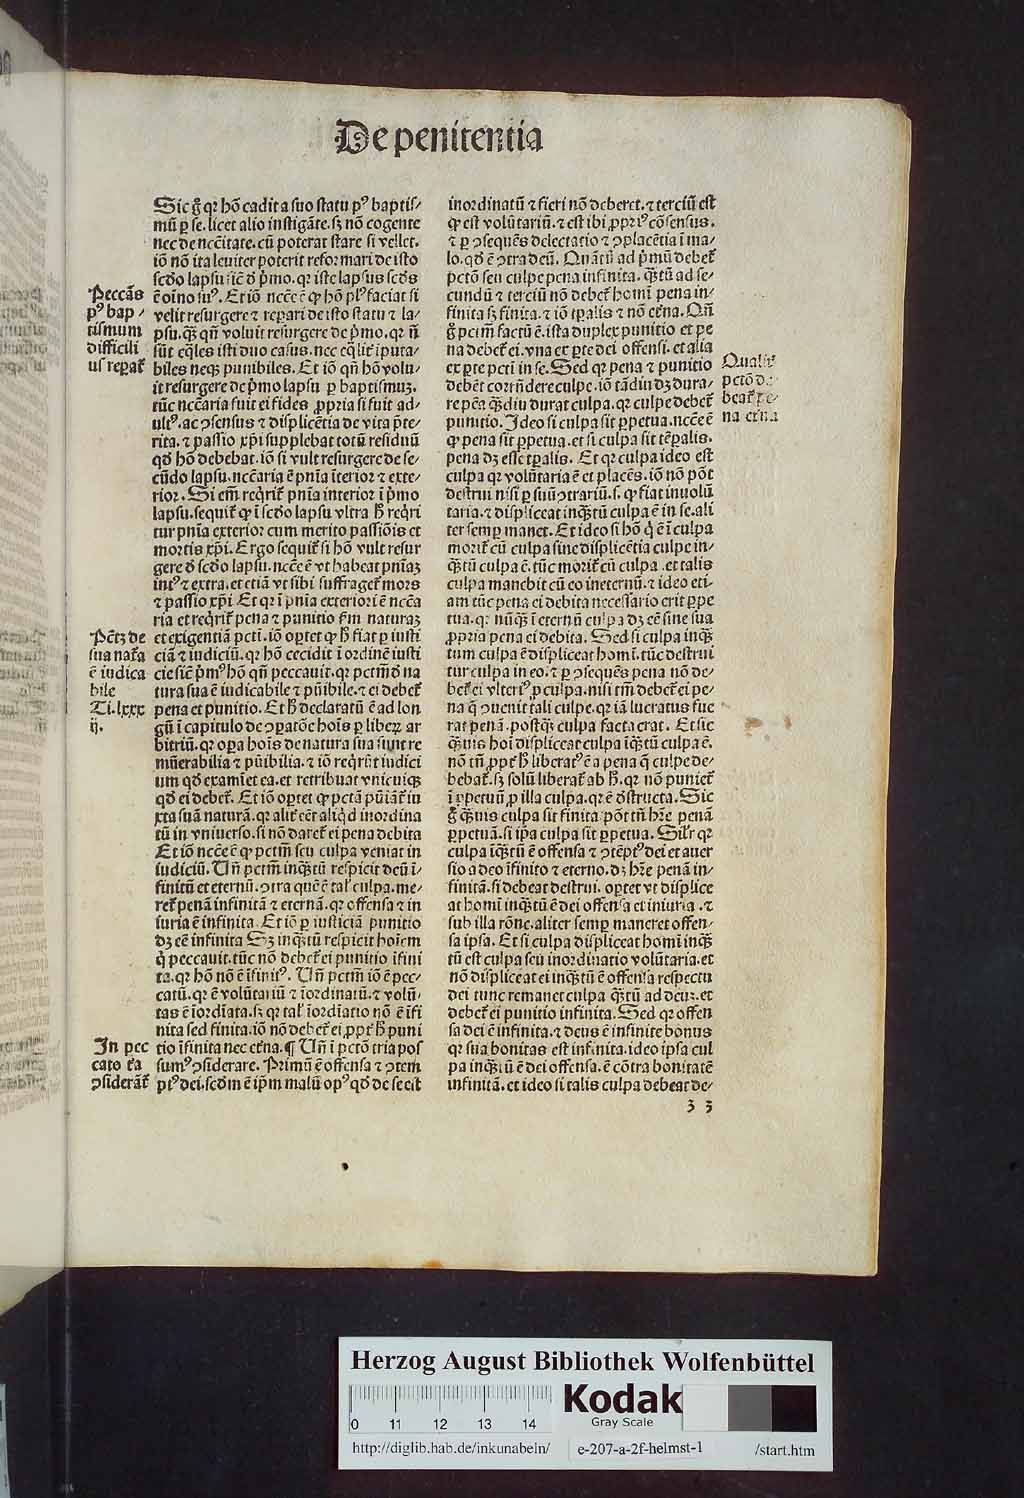 De penitentia
Sic g̃ qꝛ hõ cadit a suo statu pꝰ baptis⸗
mũ ꝑ se. licet alio instigãte. sꝫ nõ cogente
nec de nc̃citate. cũ poterat stare si vellet.
iõ nõ ita leuiter poterit reformari de isto
sc̃do lapsu
velit resurgere ⁊ reꝑari de isto statu ⁊ la⸗
biles neqꝫ punibiles. Et iõ qñ hõ volu⸗
it resurgere de p̃mo lapsu ꝑ baptismuꝫ.
tũc nc̃caria fuit ei fides ꝓpria si fuit ad⸗
ultꝰ. ac ꝯsensus ⁊ displicẽtia de vita p̃te⸗
rita. ⁊ passio xp̃i supplebat totũ residuũ
qd̃ hõ debebat. iõ si vult resurgere de se⸗
cũdo lapsu. nc̃caria ẽ pñia ĩterior ⁊ exte⸗
rior. Si em̃ reqͥrit᷑ pñia interior ĩ p̃mo
lapsu. sequit᷑ ꝙ ĩ sc̃do lapsu vltra h̃ reqͥri
tur pñia exterior cum merito passiõis et
mortis xp̃i. Ergo sequit᷑ si hõ vult resur
gere d̃ sc̃do lapsu. nc̃ce ẽ vt habeat pñiaꝫ
intꝰ ⁊ extra. et etiã vt sibi suffraget᷑ mors
⁊ passio xp̃i Et qꝛ ĩ pñia exteriori ẽ nc̃ca
ria et reqͥrit᷑ pena ⁊ punitio fm̃ naturaꝫ
et exigentiã pcti. iõ oꝑtet ꝙ h̃ fiat ꝑ iusti
ciã ⁊ iudiciũ. qꝛ hõ cecidit ĩ ordinẽ iusti
cie sic̃ p̃mꝰ hõ qñ peccauit. qꝛ pctm̃ d̃ na
tura sua ẽ iudicabile ⁊ pũibile. ⁊ ei debet᷑
pena et punitio. Et h̃ declaratũ ẽ ad lon
gũ ĩ capitulo de ꝯꝑatõe hoĩs ꝑ liberꝫ ar
bitriũ. qꝛ oꝑa hoĩs de natura sua sunt re
mũerabilia ⁊ pũibilia. ⁊ iõ reqͥrũt iudici
um qd̃ examĩet ea. et retribuat vnicuiqꝫ
qd̃ ei debet᷑. Et iõ oꝑtet ꝙ pctã pũiãt᷑ iu
xta suã naturã. qꝛ alit᷑ eẽt aliqͥd inordina
tũ in vniuerso. si nõ daret᷑ ei pena debita
Et iõ nc̃ce ẽ ꝙ pctm̃ seu culpa veniat in
iudiciũ. Uñ pctm̃ inqꝫtũ respicit deũ ĩ⸗
finitũ et eternũ. ꝯtra quẽ ẽ tal᷑ culpa. me⸗
ret᷑ penã infinitã ⁊ eternã. qꝛ offensa ⁊ in
iuria ẽ infinita. Et iõ ꝑ iusticiã punitio
dꝫ eẽ infinita Sꝫ inqꝫtũ respicit hoĩem
qͥ peccauit. tũc nõ debet᷑ ei punitio ĩfini
ta. qꝛ hõ nõ ẽ ĩfinitꝰ. Uñ pctm̃ iõ ẽ pec⸗
catũ. qꝛ ẽ volũtariũ ⁊ ĩordinatũ. ⁊ volũ⸗
tas ẽ ĩordĩata. sꝫ qꝛ tal᷑ ĩordĩatio nõ ẽ ĩfi
nita sed finita. iõ nõ debet᷑ ei ꝓpt᷑ h̃ puni
tio ĩfinita nec et̃na. ¶ Uñ ĩ pctõ tria pos
sumꝰ ꝯsiderare. Primũ ẽ offensa ⁊ ꝯtem
ptꝰ dei. scd̃m ẽ ip̃m malũ opꝰ qd̃ de se est
Peccãs
pꝰ bap⸗
tismum
difficili
us reꝑat᷑
Pctꝫ de
sua nat᷑a
ẽ iudica
bile
Ti. lxxx
ij.
In pec
cato t᷑a
ꝯsiderãt᷑
inordinatũ ⁊ fieri nõ deberet. ⁊ terciũ est
ꝙ est volũtariũ. ⁊ est ibi ꝓpriꝰ cõsensus.
⁊ ꝑ ꝯsequẽs delectatio ⁊ ꝯplacẽtia ĩ ma⸗
lo. qd̃ ẽ ꝯtra deũ. Quãtũ ad p̃mũ debet᷑
pctõ seu culpe pena infinita. qꝫtũ ad se⸗
cundũ ⁊ terciũ nõ debet᷑ homĩ pena in⸗
finita sꝫ finita. ⁊ iõ tꝑalis ⁊ nõ et̃na. Qñ
g̃ pctm̃ factũ ẽ. ista duplex punitio et pe
na debet᷑ ei. vna ex ꝑte dei offensi. et alia
ex ꝑte pcti in se. Sed qꝛ pena ⁊ punitio
debẽt corrñdere culpe. iõ tãdiu dꝫ dura⸗
re pẽa qꝫdiu durat culpa. qꝛ culpe debet᷑
punitio. Ideo si culpa sit ꝑpetua. nc̃ce ẽ
ꝙ pena sit ꝑpetua. et si culpa sit tẽꝑalis.
pena dꝫ esse tꝑalis. Et qꝛ culpa ideo est
culpa qꝛ volũtaria ẽ et placẽs. iõ nõ põt
destrui nisi ꝑ suũ ꝯtrariũ. s. ꝙ fiat inuolũ
taria. ⁊ displiceat inqꝫtũ culpa ẽ in se. ali
ter semꝑ manet. Et ideo si hõ qͥ ẽ ĩ culpa
morit᷑ cũ culpa sine displicẽtia culpe in⸗
qꝫtũ culpa ẽ. tũc morit᷑ cũ culpa. et talis
culpa manebit cũ eo ineternũ. ⁊ ideo eti⸗
am tũc pena ei debita necessario erit ꝑpe
tua. qꝛ nũqꝫ ĩ eternũ culpa dꝫ eẽ sine sua
ꝓpria pena ei debita. Sed si culpa inqꝫ
tum culpa ẽ displiceat homĩ. tũc destrui
tur culpa in eo. ⁊ ꝑ ꝯsequẽs pena nõ de⸗
bet᷑ ei vlteriꝰ ꝓ culpa. nisi tm̃ debet᷑ ei pe⸗
na q̃ ꝯuenit tali culpe. qꝛ iã lucratus fue
rat penã. postqꝫ culpa facta erat. Et sic
qꝫuis hoĩ displiceat culpa ĩqꝫtũ culpa ẽ.
nõ tñ ꝓpt᷑ h̃ liberatꝰ ẽ a pena q̃ culpe de⸗
bebat᷑. sꝫ solũ liberat᷑ ab h̃. qꝛ nõ puniet᷑
ĩ ꝑpetuũ ꝓ illa culpa. qꝛ ẽ d̃structa. Sic
g̃ qꝫuis culpa sit finita põt tñ hr̃e penã
ꝑpetuã. si ip̃a culpa sit ꝑpetua. Sil᷑r qꝛ
culpa ĩqꝫtũ ẽ offensa ⁊ ꝯtẽptꝰ dei et auer
sio a deo ĩfinito ⁊ eterno. dꝫ hr̃e penã in⸗
finitã. si debeat destrui. oꝑtet vt displice
at homĩ inqꝫtũ ẽ dei offensa et iniuria. ⁊
sub illa rõne. aliter semꝑ maneret offen⸗
sa ipsa. Et si culpa displiceat homĩ inqꝫ
tũ est culpa seu inordinatio volũtaria. et
nõ displiceat ei inqꝫtũ ẽ offensa respectu
dei tunc remanet culpa qꝫtũ ad deuꝫ. et
debet᷑ ei punitio infinita. Sed qꝛ offen
sa dei ẽ infinita. ⁊ deus ẽ infinite bonus
qꝛ sua bonitas est infinita. ideo ipsa cul
pa inqꝫtũ ẽ dei offensa. ẽ cõtra bonitatẽ
infinitã. et ideo si talis culpa debeat de⸗
Qualit᷑
na et̃na
3 3
Herzog August Bibliothek Wolfenbüttel
0 11 12 13 14
Kodak
Gray Scale
http://diglib.hab.de/inkunabeln/ e-207-a-2f-helmst-1 /start.htm